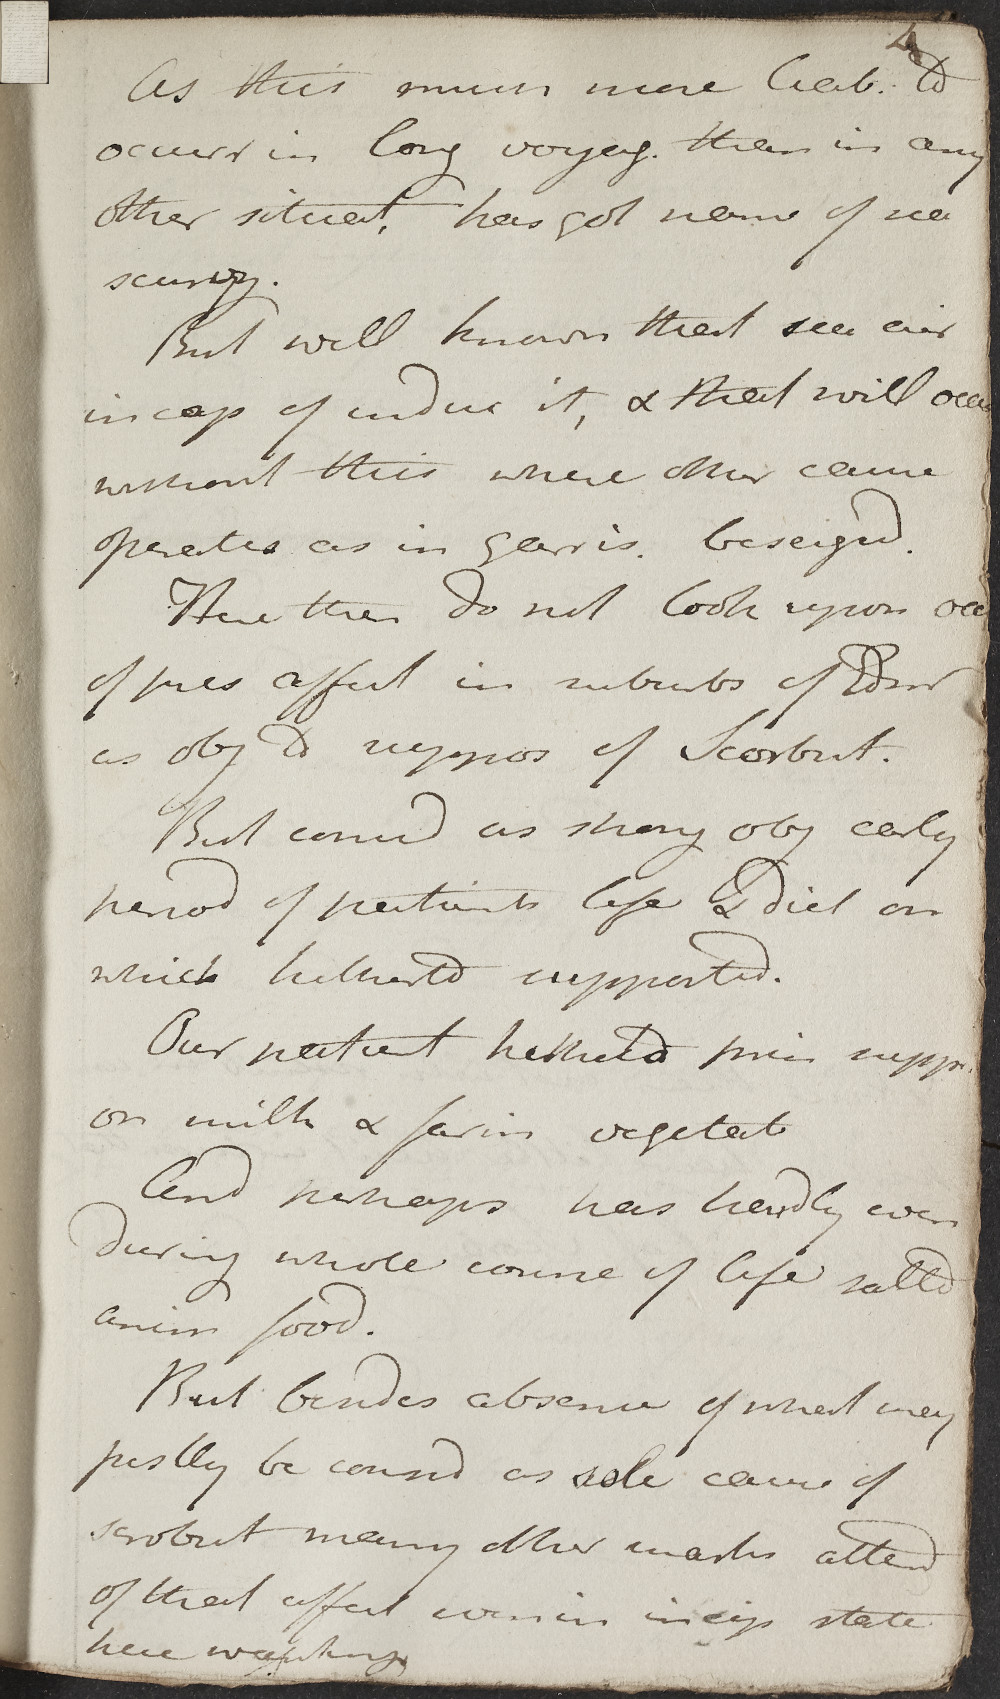 4
As this mum more liab. to
occurr in long voyag. than in any
other situat. has got name of sea
scurvy.
But well known that sea air
incap of induc it, & that will occu
without this where other cause
operates as in garris. beseiged.
Here then do not look upon occ
of pres affect in suburbs of Edinr
as obj to suppos of Scorbut.
But consid as strong obj early
period of patients life & diet on
which hitherto supported.
Our patient hitherto prin suppr.
on milk & farin vegetab
And perhaps has hardly even
during whole course of life salted
anim food.
But besides absence of what may
justly be consid as sole cause of
scrobut many other marks attend
of that affect even in incip state
here wanting